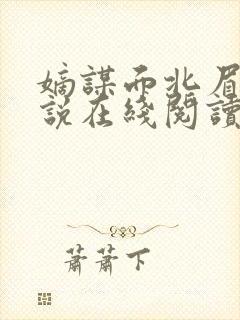 嫡謀而北眉
說在綫閱讀
蕭蕭下